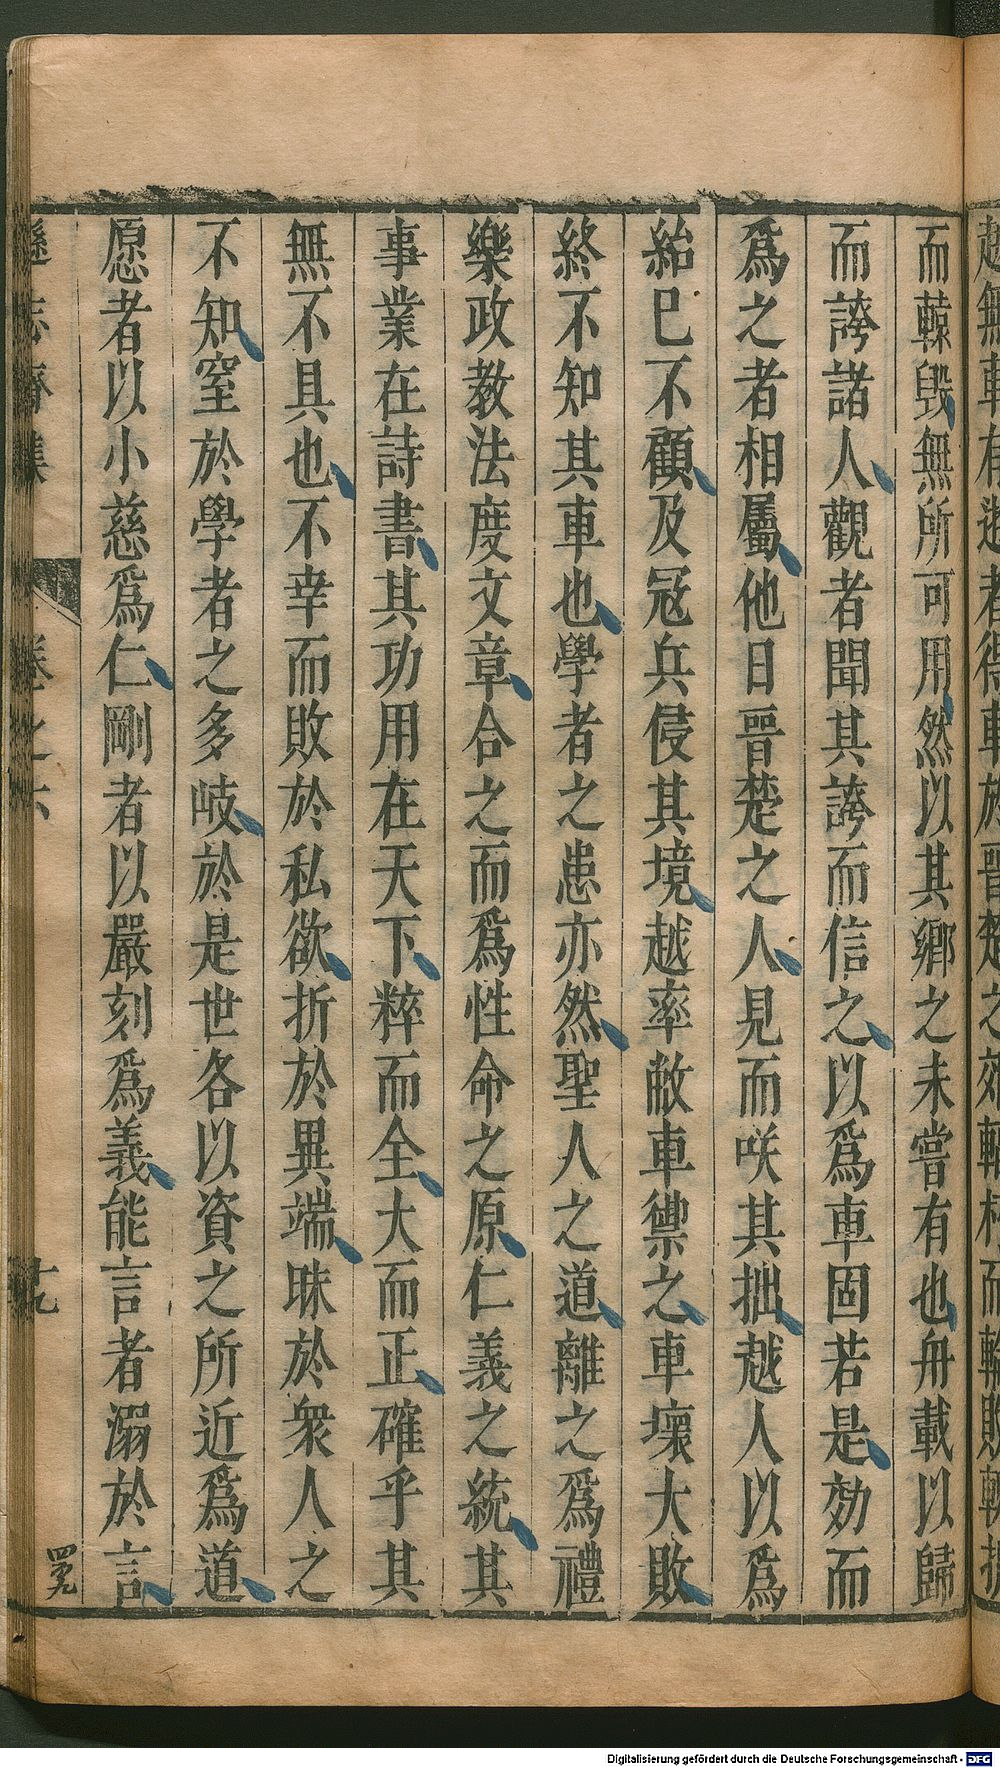 越無車有遊者得車於晉楚之郊輻朽而輪敗
而轅毀無所可用然以其鄉之未嘗有也舟載以歸
而誇諸人觀者聞其誇而信之以爲車固若是効而
爲之者相屬他日晉楚之人見而咲其拙越人以爲
紿已不顧及冦兵侵其境越率敝車禦之車壞大敗
終不知其車也學者之患亦然聖人之道離之爲禮
樂政教法度文章合之而爲性命之原仁義之統其
事業在詩書其功用在天下粹而全大而正確乎其
無不具也不幸而敗於私欲折於異端昧於衆人之
不知窒於學者之多岐於是世各以資之所近爲道
愿者以小慈爲仁剛者以嚴刻爲義能言者溺於言
遜志齋集
卷之六
十九
Digitalisierung gefördert durch die Deutsche Forschungsgemeinschaft - DFG